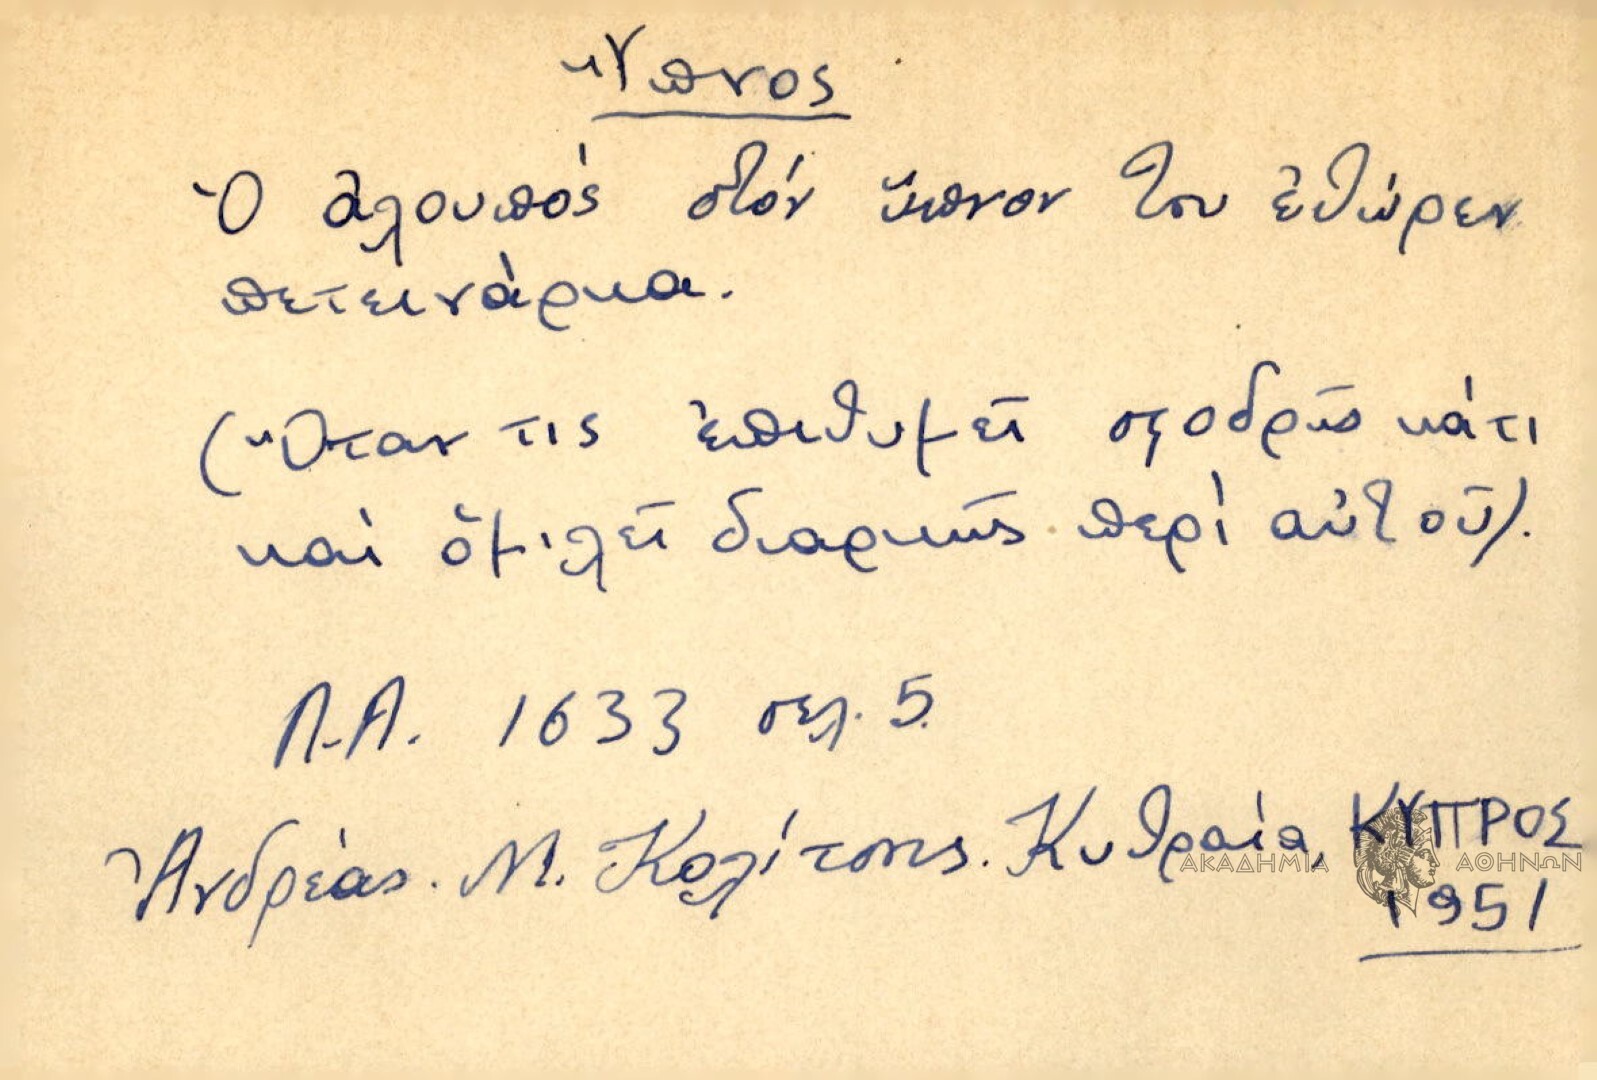 Ὕπνος
Ὁ ἀλουπός στόν ὕπνον του ἐθώρεν
πετεινάρκα.
(Ὅταν τις ἐπιθυμεῖ σφοδρῶς κάτι
καί ὁμιλεῖ διαρκῶς περί αὐτοῦ).
Λ.Α. 1633 σελ. 5.
Ἀνδρέας. Μ. Κολίτσης. Κυθραία, ΚΥΠΡΟΣ
ΑΚΑΔΗΜΙΑ ΑΘΗΝΩΝ
1951